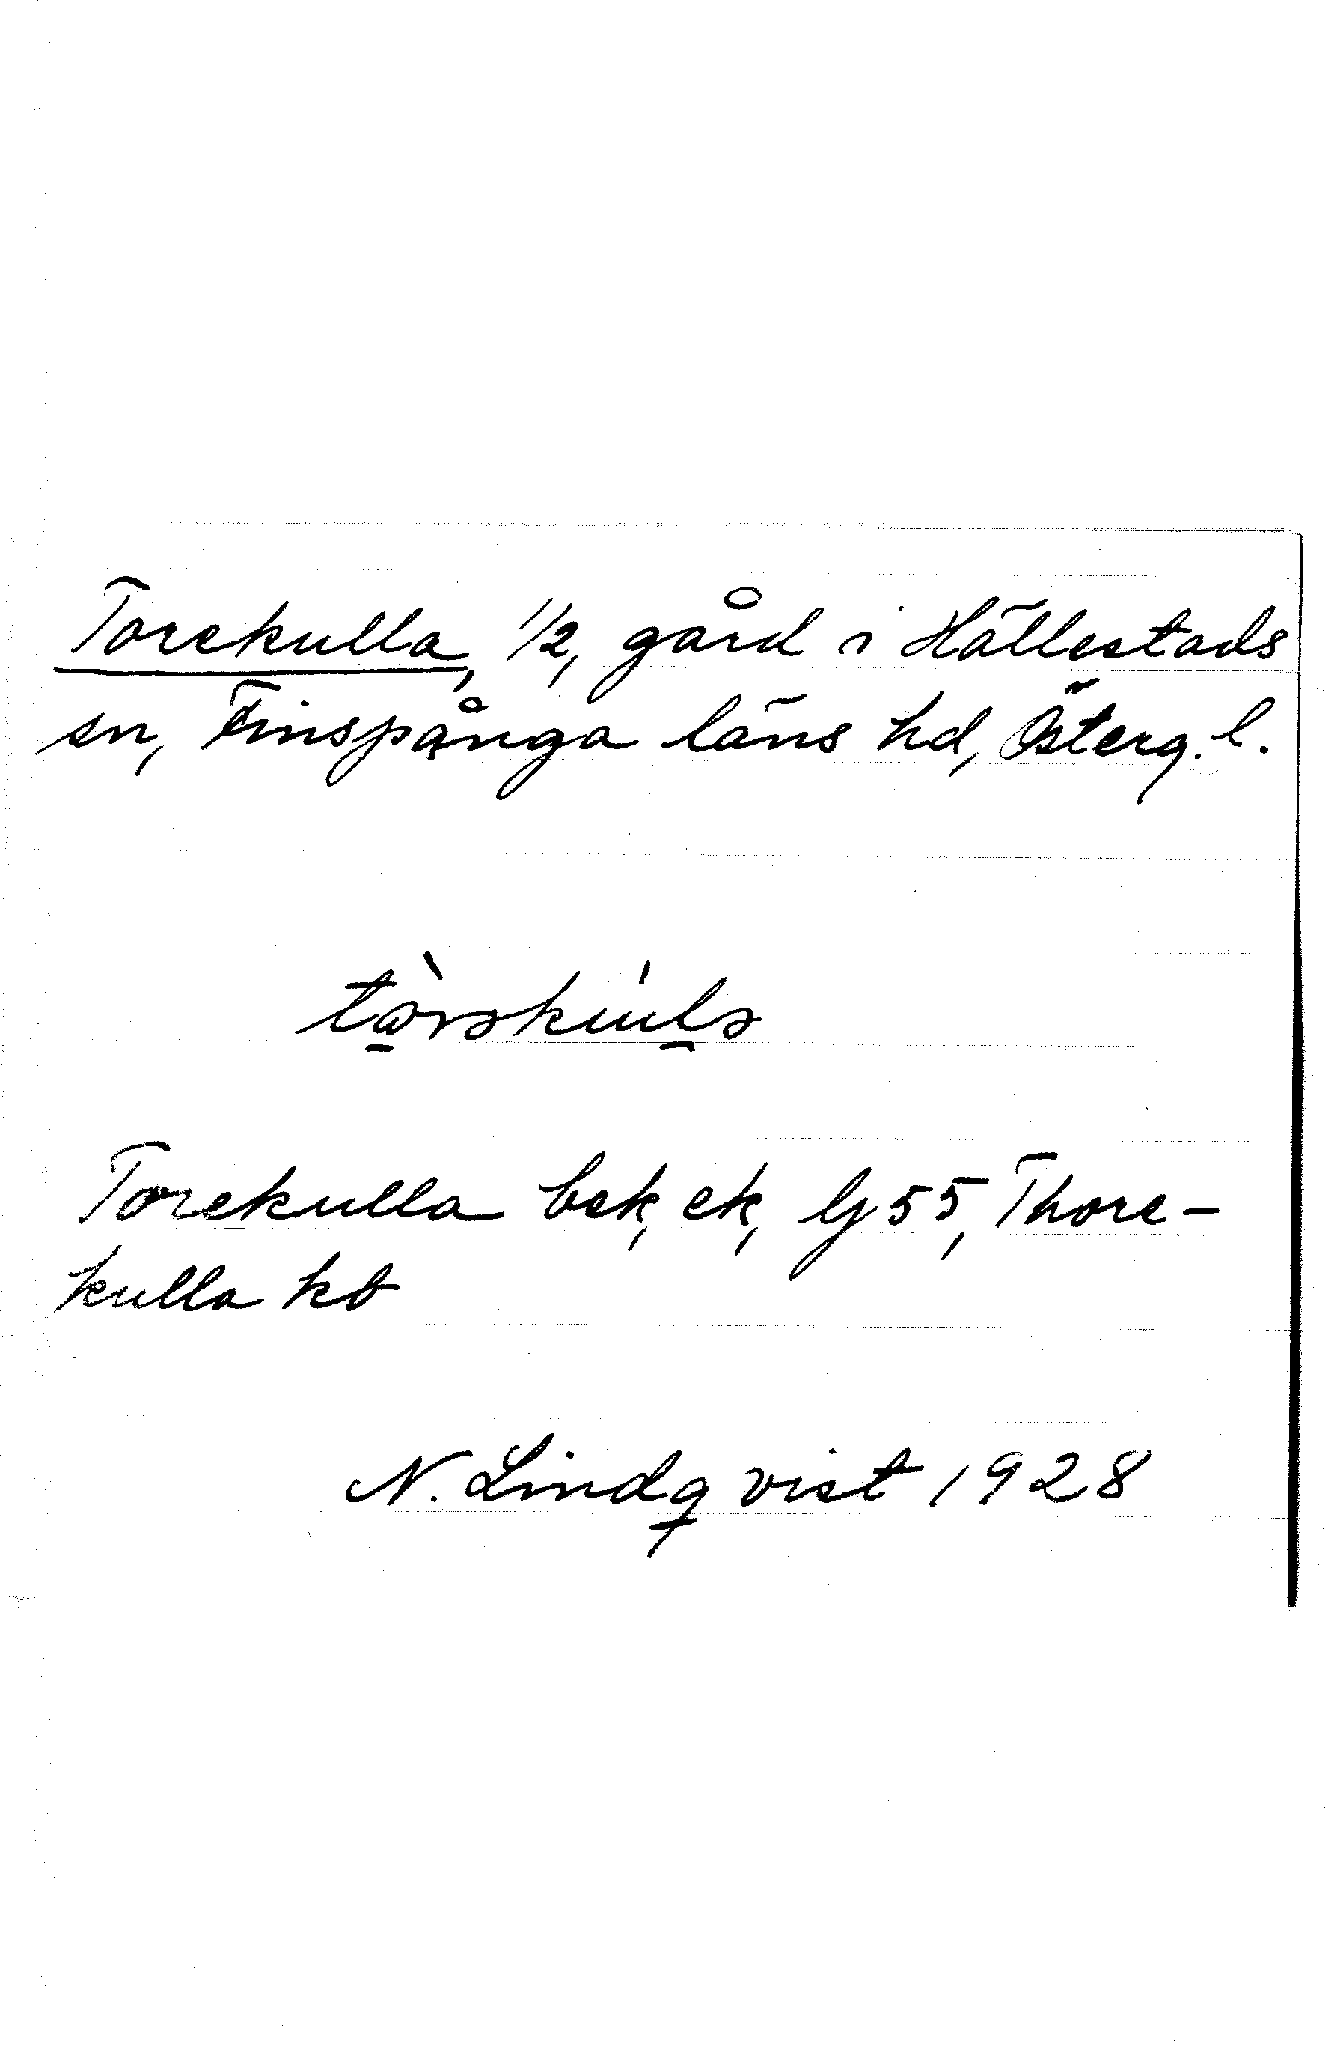 Torekulla, 1/2, gård i Hällestads
sn, Finspånga läns hd, Österg. l.
Torekulla bek, ek, Gj 55, Thore-
kulla kb
N. Lindqvist 1928